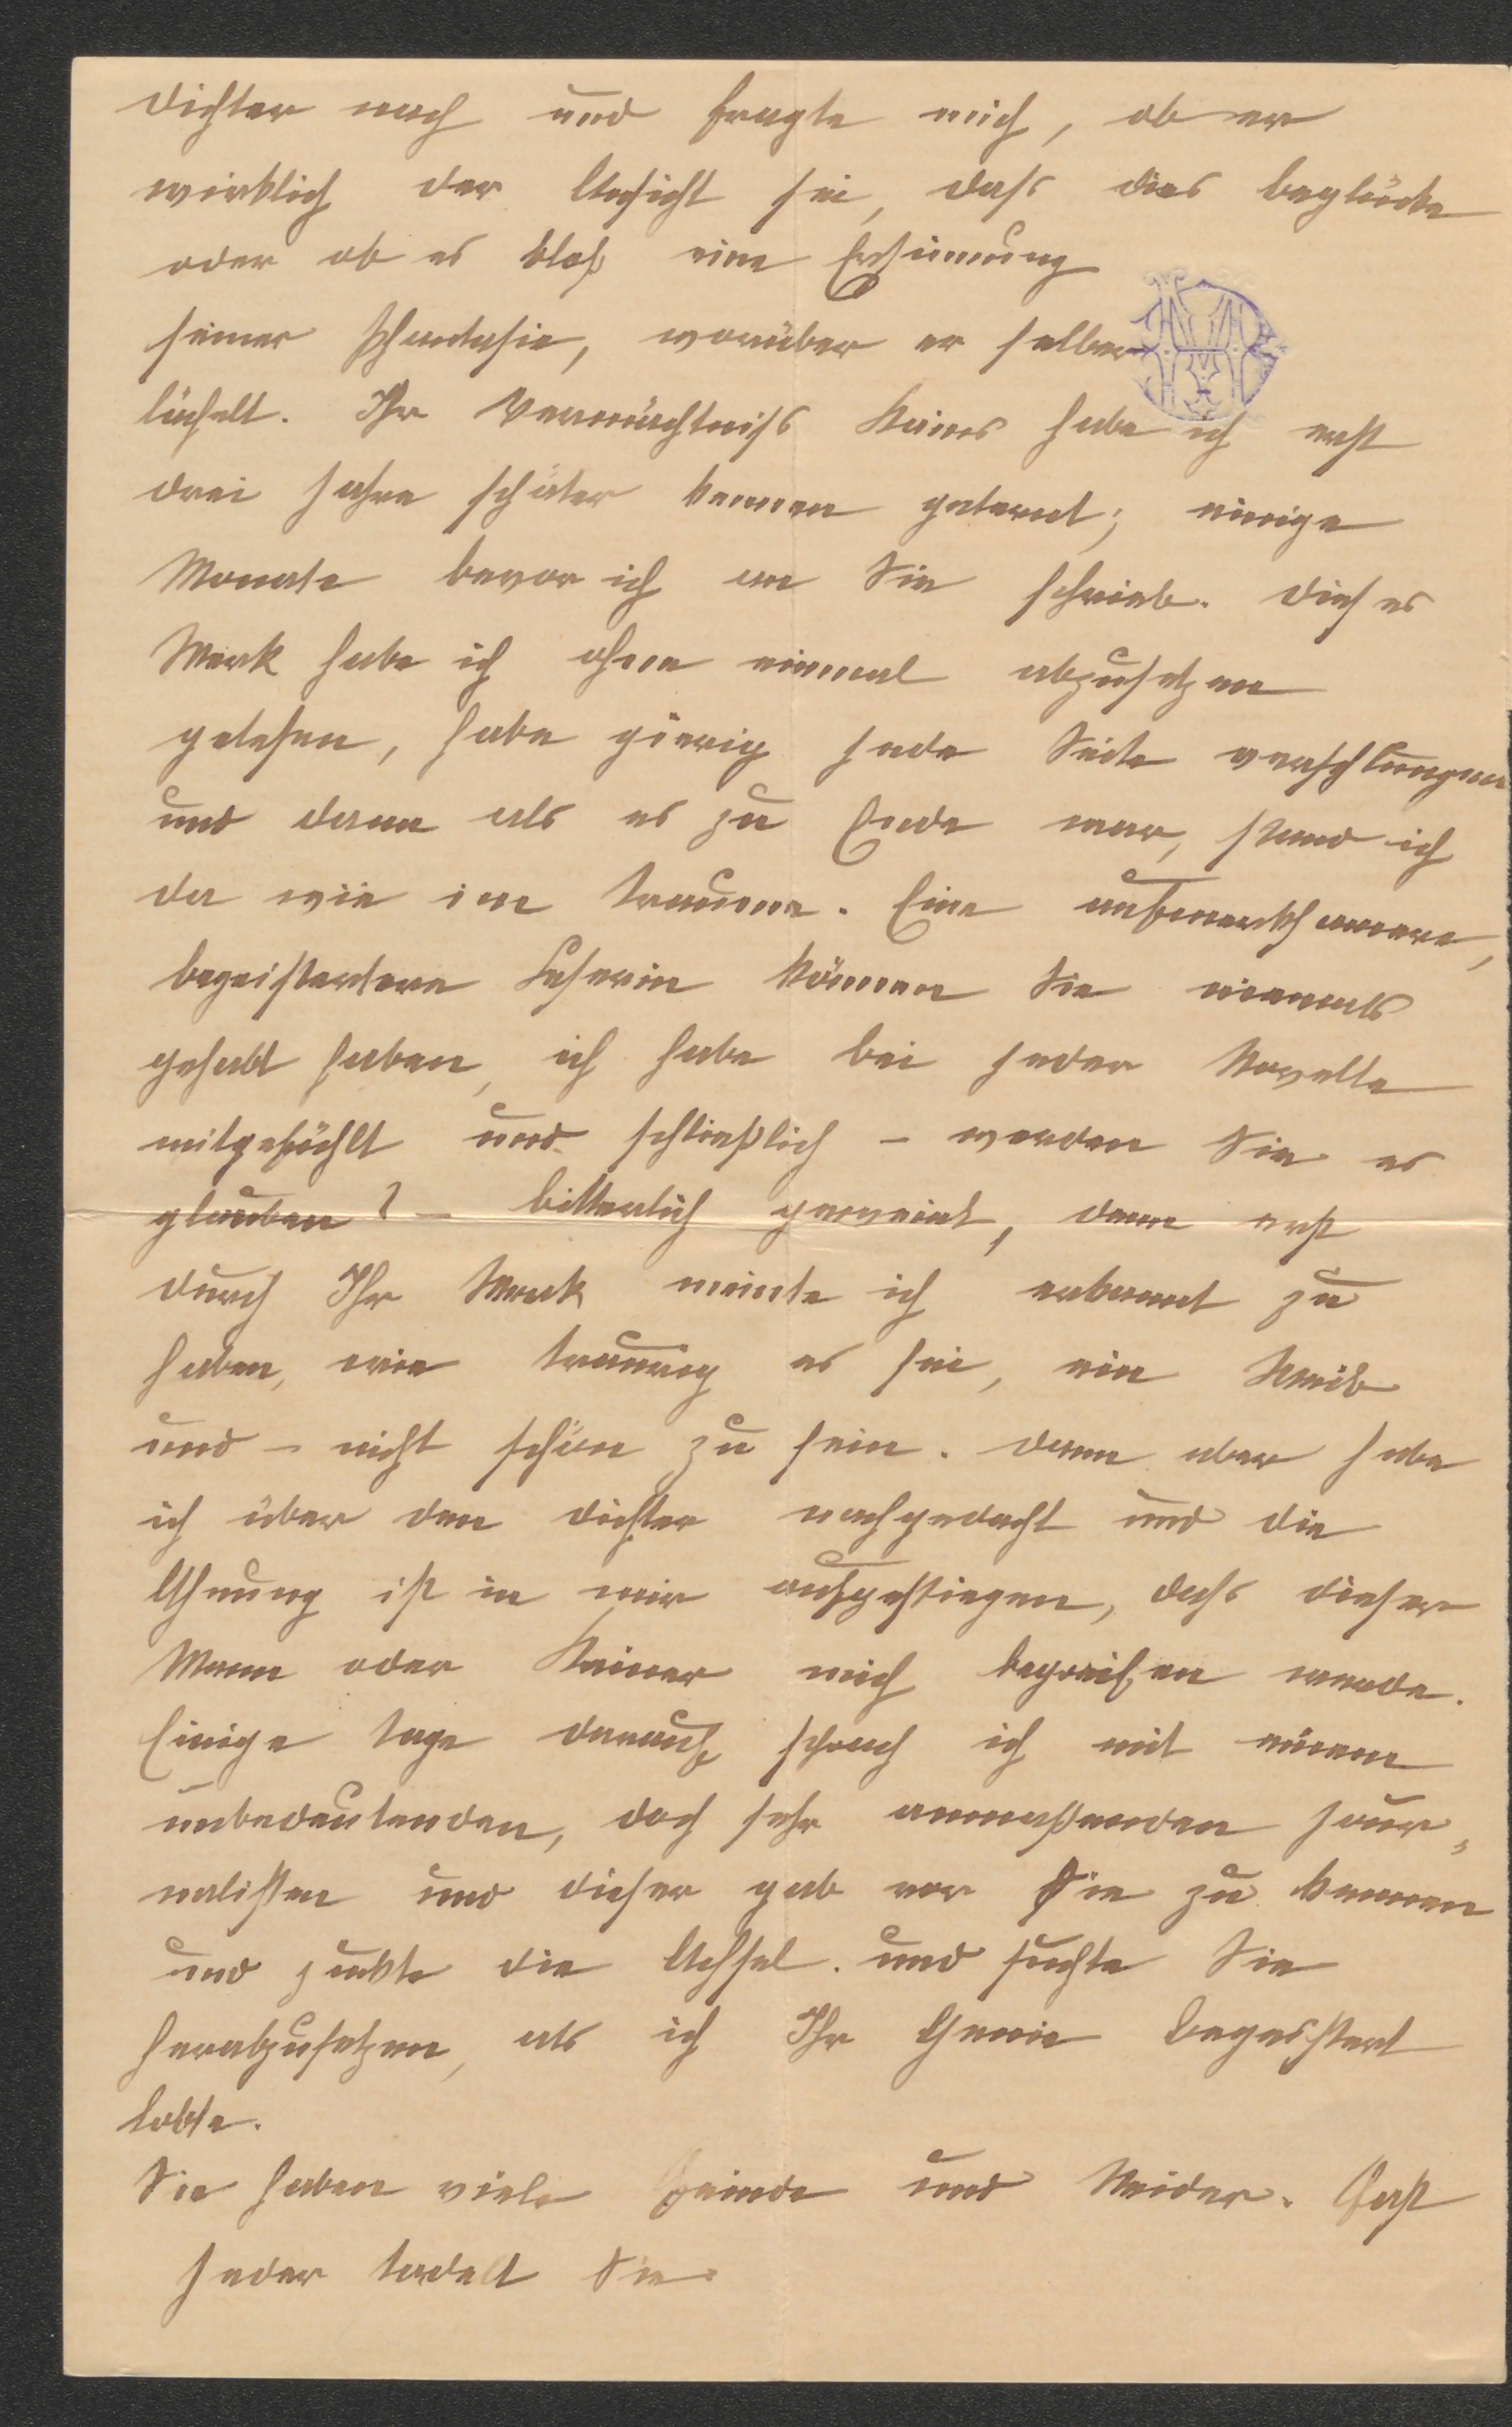 Dichter nach und fragte mich, ob er
wirklich der Ansicht sei, dass dies beglücke
oder ob es bloß eine Ersinnung
seiner Phantasie, worüber er selber
lächelt. Ihr Vermächtniss Kains habe ich erst
drei Jahre später kennen gelernt; einige
Monate bevor ich an Sie schrieb. Dieses
Werk habe ich ohne einmal abzusetzen
gelesen, habe gierig jede Seite verschlungen
und dann als es zu Ende war, stand ich
da wie im Traume. Eine aufmerksamere,
begeistertere Leserin können Sie niemals
gehabt haben, ich habe bei jeder Novelle
mitgefühlt und schließlich – werden Sie es
glauben? – bitterlich geweint, denn erst
durch Ihr Werk meinte ich erkannt zu
haben, wie traurig es sei, ein Weib
und – nicht schön zu sein. Dann aber habe
ich über den Dichter nachgedacht und die
Ahnung ist in mir aufgestiegen, dass dieser
Mann oder Keiner mich begreifen werde.
Einige Tage darauf sprach ich mit einem
unbedeutenden, doch sehr anmaßenden Jour-
nalisten und dieser gab vor Sie zu kennen
und zuckte die Achsel und suchte Sie
herabzusetzen, als ich Ihr Genie begeistert
lobte.
Sie haben viele Feinde und Neider. Fast
Jeder tadelt Sie